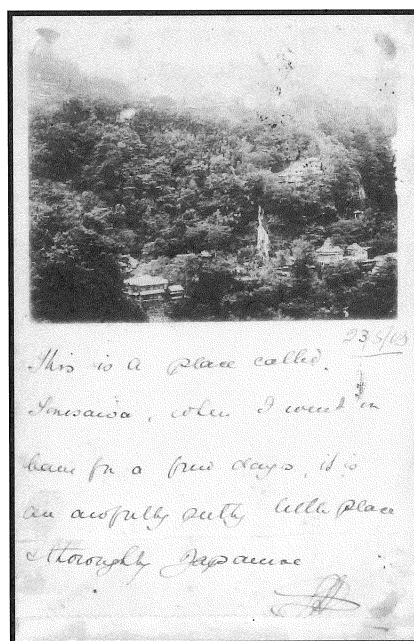 23/5/05
This is a place called.
when I went in
for a few days, it is
an awfully pretty little place
& thoroughly Japanese